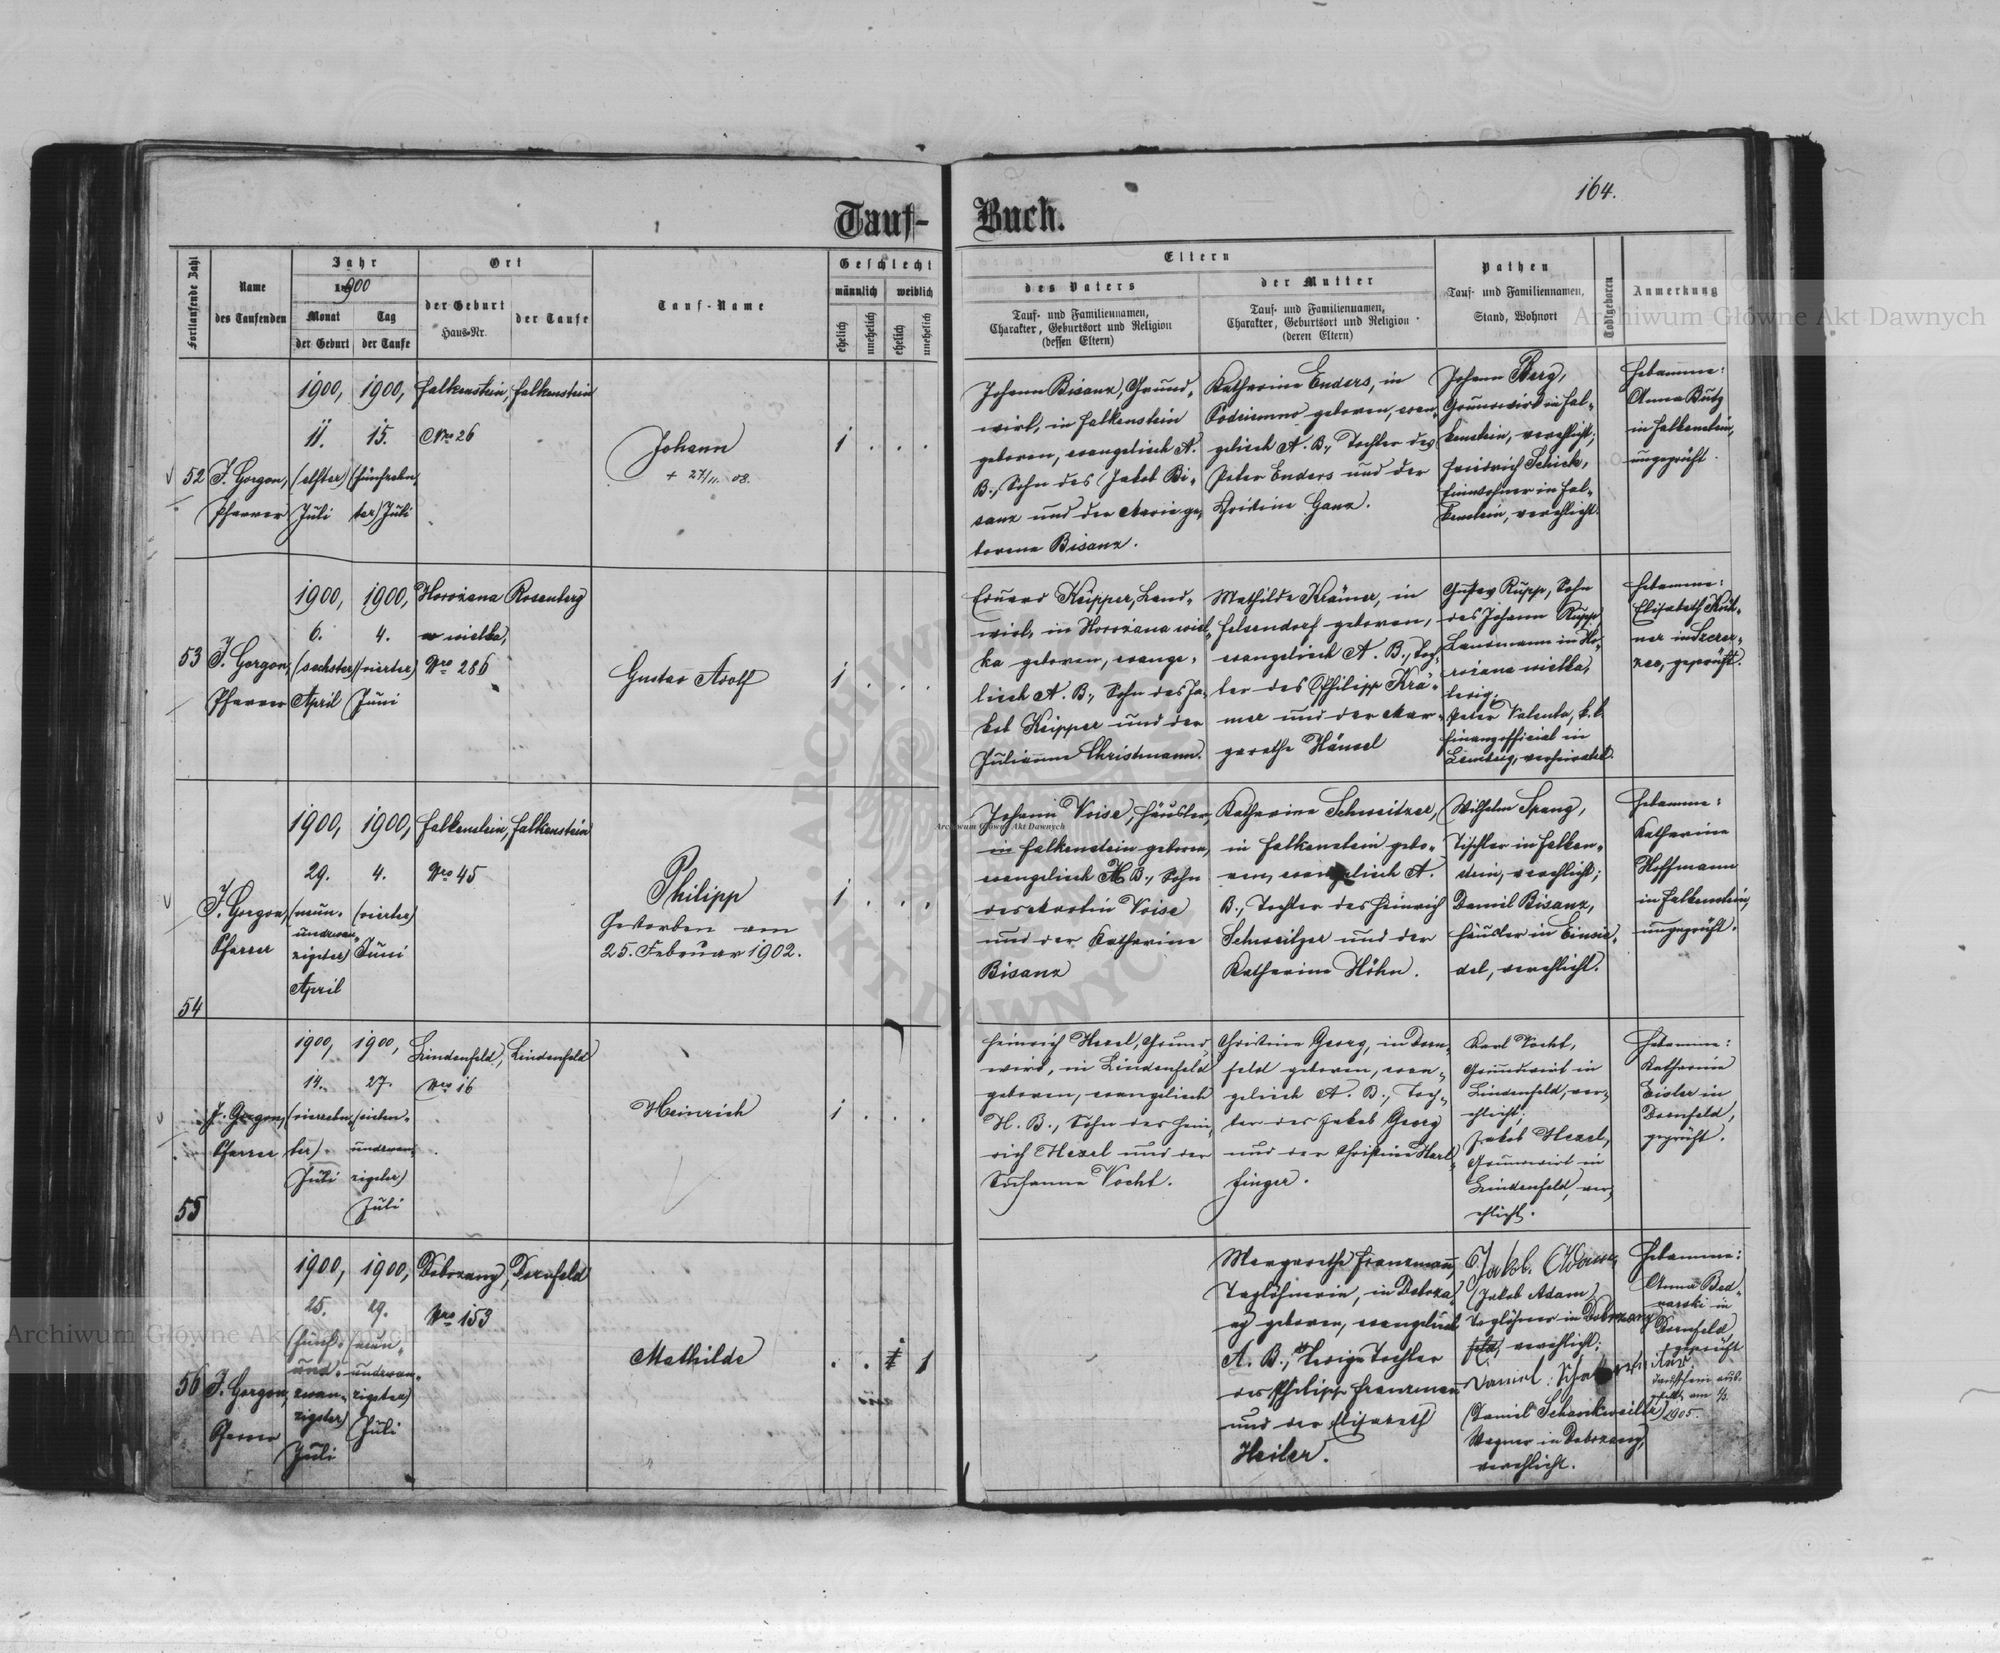 164.
Tauf-Buch.
Fortlaufende Zahl
Name des Taufenden
Jahr
1900
Monat
Tag
der Geburt
der Taufe
Ort
der Geburt
Haus-Nr.
der Taufe
Tauf-Name
Geschlecht
männlich
weiblich
ehelich
unehelich
ehelich
unehelich
Eltern
des Vaters
Tauf- und Familiennamen,
Charakter, Geburtsort und Religion
(dessen Eltern)
der Mutter
Tauf- und Familiennamen,
Charakter, Geburtsort und Religion
(deren Eltern)
Pathen
Tauf- und Familiennamen,
Stand, Wohnort
Todtgeboren
Anmerkung
52
J. Gorgon,
Pfarrer
1900,
11.
(elfter)
Juli
1900,
15.
(fünfzehn-
ter) Juli
Falkenstein,
Nro 26
Falkenstein
Johann
+ 27/11. 08.
1
Johann Bisanz, Grund-
wirt, in Falkenstein
geboren, evangelisch A.
B., Sohn des Jakob Bi-
sanz und der Marie ge-
borene Bisanz.
Katharina Enders, in
geboren, evan-
gelisch A. B., Tochter des
Peter Enders und der
Christine Ganz.
Johann Berg,
Grundwirt in Fal-
kenstein, verehlicht;
Friedrich Schick,
Einwohner in Fal-
kenstein, verehlicht.
Hebamme:
Anna Butz
in Falkenstein,
ungeprüft.
53
J. Gorgon,
Pfarrer
1900,
6.
(sechster)
April
1900,
4.
(vierter)
Juni
Horożana
wielka,
Nro 286
Rosenberg
Gustav Adolf
1
Eduard Küpper, Land-
wirt, in Horożana wiel-
ka geboren, evange-
lisch A. B., Sohn des Ja-
kob Küpper und der
Julianna Christmann.
Mathilde Krämer, in
Felsendorf geboren,
evangelisch A. B., Toch-
ter des Philipp Krä-
mer und der Mar-
garethe Hänsel
Gustav Rupp, Sohn
des Johann Rupp,
Landmann in Ho-
rożana wielka,
ledig;
Peter Valenta, k.k.
Finanzofficial in
Lemberg, verheiratet.
Hebamme:
Elisabeth Küt-
ner in Szczer-
zec, geprüft.
54
J. Gorgon,
Pfarrer
1900,
29.
(neun-
undzwan-
zigster)
April
1900,
4.
(vierter)
Juni
Falkenstein,
Nro 45
Falkenstein
Philipp
Gestorben am
25. Februar 1902.
1
Johann Voise, Häusler,
in Falkenstein geboren,
evangelisch H. B., Sohn
des Martin Voise
und der Katharina
Bisanz
Katharina Schweitzer,
in Falkenstein gebo-
ren, evangelisch A.
B., Tochter des Heinrich
Schweitzer und der
Katharina Höhn.
Wilhelm Spang,
Tischler in Falken-
stein, verehlicht;
Daniel Bisanz,
Häusler in Einsie-
del, verehlicht.
Hebamme:
Katharina
Hoffmann
in Falkenstein,
ungeprüft.
55
J. Gorgon,
Pfarrer
1900,
14.
(vierzehn-
ter)
Juli
1900,
27.
(sieben-
undzwan-
zigster)
Juli
Lindenfeld,
Nro 16
Lindenfeld
Heinrich
1
Heinrich Hexel, Grund-
wirt, in Lindenfeld
geboren, evangelisch
H. B., Sohn des Hein-
rich Hexel und der
Susanna Vocht.
Christina Georg, in Dorn-
feld geboren, evan-
gelisch A. B., Toch-
ter des Jakob Georg
und der Christina Harl-
finger.
Karl Vocht,
Grundwirt in
Lindenfeld, ver-
ehlicht;
Jakob Hexel,
Grundwirt in
Lindenfeld, ver-
ehlicht.
Hebamme:
Katharina
Eisler in
Dornfeld,
geprüft.
56
J. Gorgon,
Pfarrer
1900,
25.
(fünf-
und-
zwan-
zigster)
Juli
1900,
29.
(neun-
undzwan-
zigster)
Juli
Dobrzany,
Nro 153
Dornfeld
Mathilde
1
Margarethe Franzmann,
Taglöhnerin, in Dobrza-
ny geboren, evangelisch
A. B., ledige Tochter
des Philipp Franzmann
und der Elisabeth
Heiler.
Jakob Adam
(Jakob Adam)
Taglöhner in Dobrzany
verehlicht;
Daniel
(Daniel Schankweiler)
Wagner in Dobrzany,
verehlicht.
Hebamme:
Anna Bed-
narski in
Dornfeld
geprüft
Taufschein aus-
gestellt am 1/3.
1905.
Archiwum Główne Akt Dawnych
Archiwum Główne Akt Dawnych
Archiwum Główne Akt Dawnych